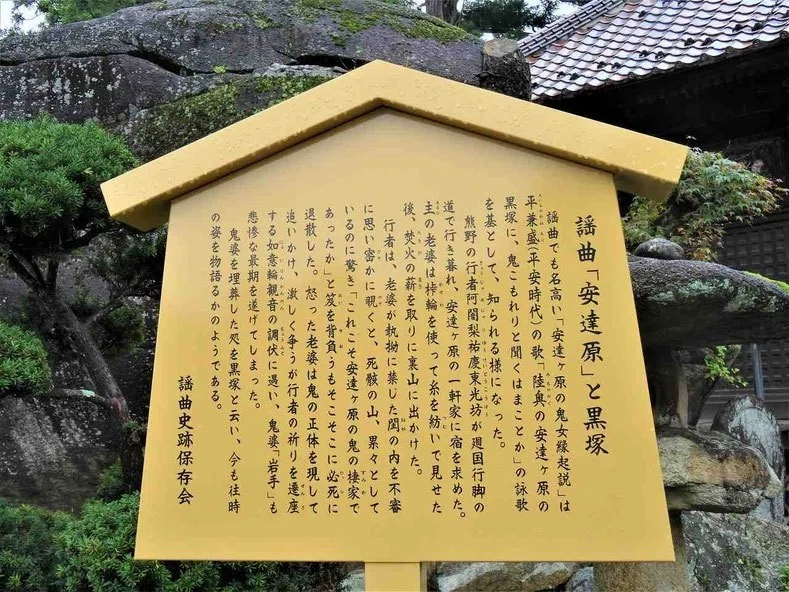 謡曲「安達原」と黒塚
謡曲でも名高い「安達ヶ原の鬼女縁起説」は
平兼盛(平安時代)の歌「陸奥の安達ヶ原の
黒塚に、鬼こもれりと聞くはまことか」の詠歌
を基として、知られる様になった。
熊野の行者阿闍梨祐慶東光坊が廻国行脚の
道で行き暮れ、安達ヶ原の一軒家に宿を求めた。
主の老婆は桛輪を使って糸を紡いで見せた
後、焚火の薪を取りに裏山に出かけた。
行者は、老婆が執拗に禁じた閨の内を不審
に思い密かに覗くと、死骸の山、累々として
いるのに驚き「これこそ安達ヶ原の鬼の棲家で
あったか」と笈を背負うもそこそこに必死に
退散した。怒った老婆は鬼の正体を現して
追いかけ、激しく争うが行者の祈りを達座
する如意輪観音の調伏に遇い、鬼婆「岩手」も
悲惨な最期を遂げてしまった。
鬼婆を埋葬した処を黒塚と云い、今も往時
の姿を物語るかのようである。
謡曲史跡保存会